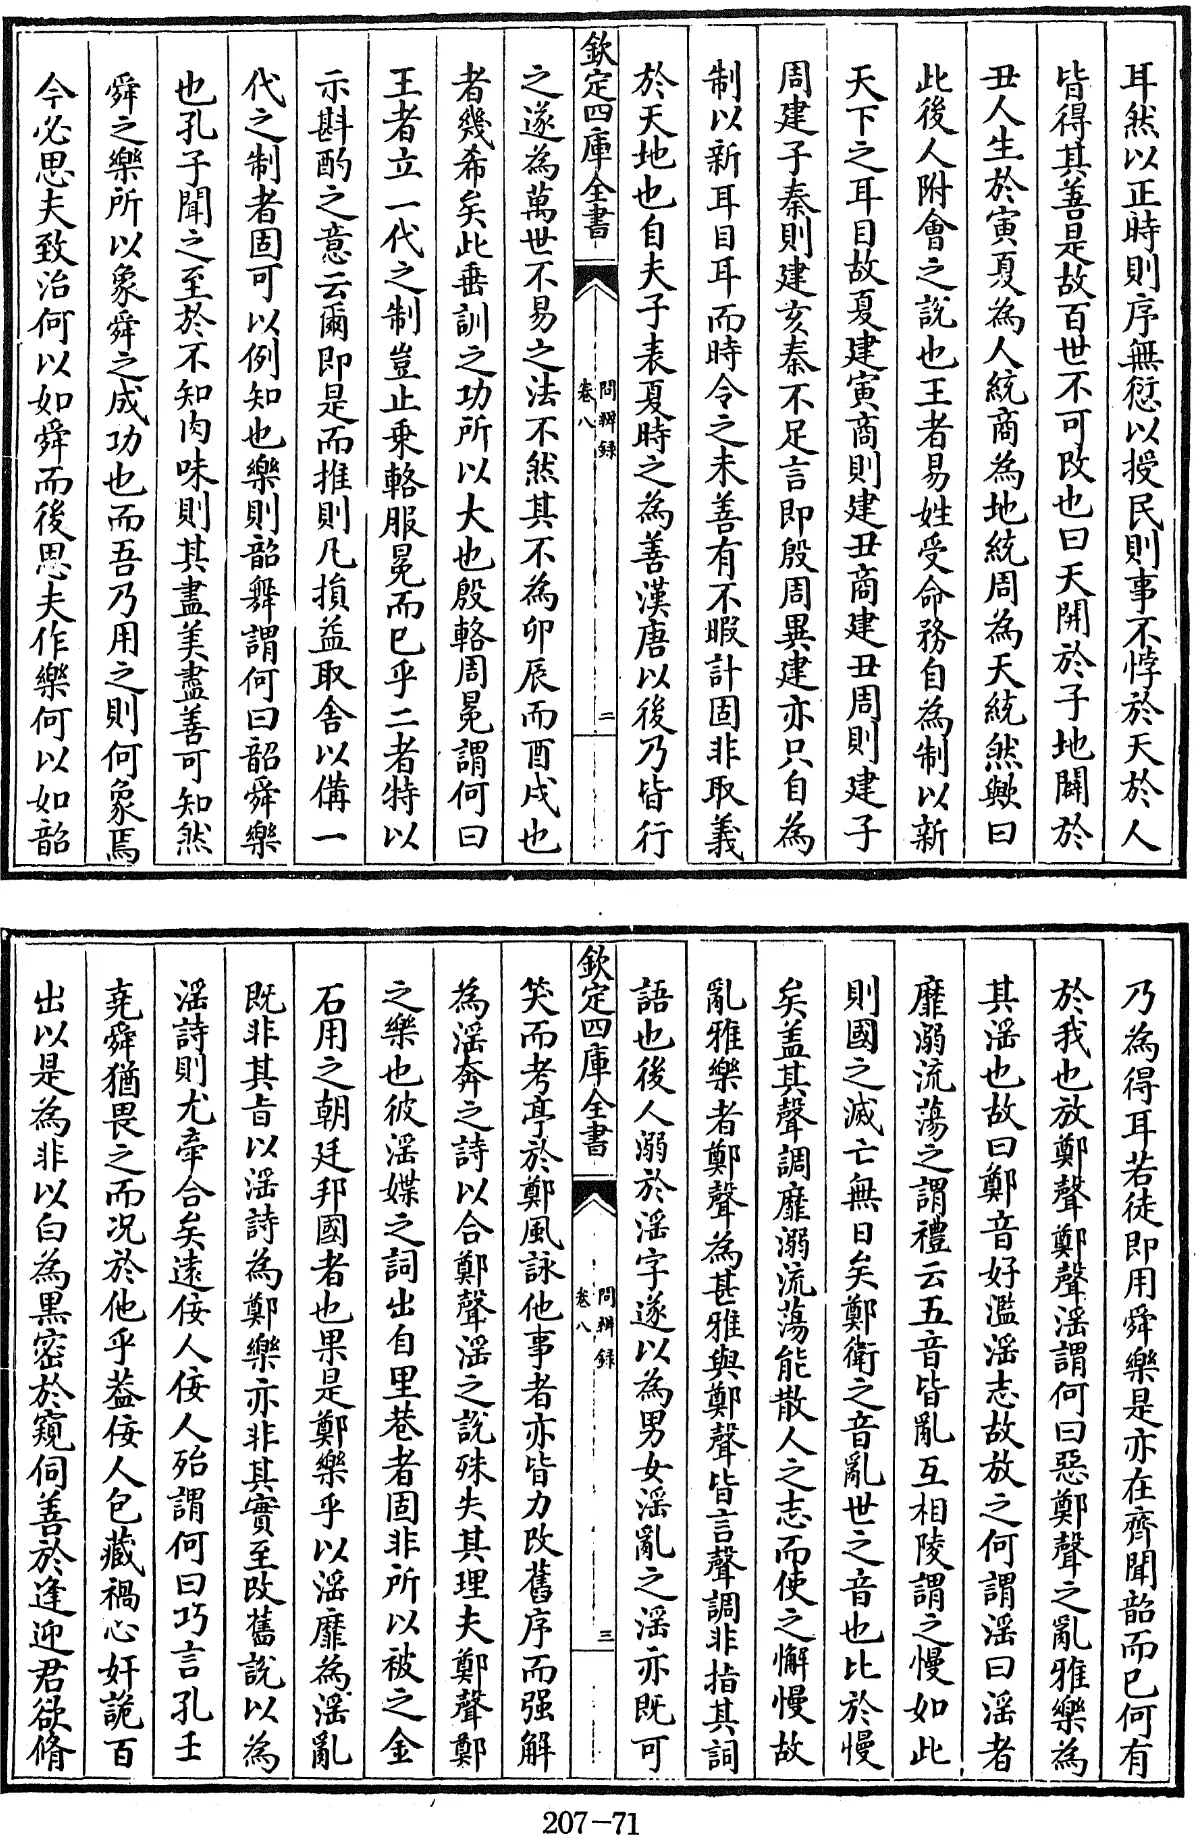 耳然以正時則序無愆以授民則事不悖於天於人
皆得其善是故百世不可改也曰天開於子地闢於
丑人生於寅夏為人統商為地統周為天統然歟曰
此後人附會之說也王者易姓受命務自為制以新
天下之耳目故夏建寅商則建丑商建丑周則建子
周建子秦則建亥秦不足言即殷周異建亦只自為
制以新耳目耳而時令之未善有不暇計固非取義
於天地也自夫子表夏時之為善漢唐以後乃皆行
欽定四庫全書
問辨録
卷八
二
之遂為萬世不易之法不然其不為卯辰而酉戌也
者幾希矣此垂訓之功所以大也殷輅周冕謂何曰
王者立一代之制豈止乗輅服冕而已乎二者特以
示斟酌之意云爾即是而推則凡損益取舍以備一
代之制者固可以例知也樂則韶舞謂何曰韶舜樂
也孔子聞之至於不知肉味則其盡美盡善可知然
舜之樂所以象舜之成功也而吾乃用之則何象焉
今必思夫致治何以如舜而後思夫作樂何以如韶
乃為得耳若徒即用舜樂是亦在齊聞韶而已何有
於我也放鄭聲鄭聲淫謂何曰惡鄭聲之亂雅樂為
其淫也故曰鄭音好濫淫志故放之何謂淫曰淫者
靡溺流蕩之謂禮云五音皆亂互相陵謂之慢如此
則國之滅亡無日矣鄭衛之音亂世之音也比於慢
矣盖其聲調靡溺流蕩能散人之志而使之懈慢故
亂雅樂者鄭聲為甚雅與鄭聲皆言聲調非指其詞
語也後人溺於淫字遂以為男女淫亂之淫亦既可
欽定四庫全書
問辨録
卷八
三
笑而考亭於鄭風詠他事者亦皆力改舊序而强解
為淫奔之詩以合鄭聲淫之說殊失其理夫鄭聲鄭
之樂也彼淫媟之詞出自里巷者固非所以被之金
石用之朝廷邦國者也果是鄭樂乎以淫靡為淫亂
既非其旨以淫詩為鄭樂亦非其實至改舊說以為
淫詩則尤牽合矣遠佞人佞人殆謂何曰巧言孔壬
堯舜猶畏之而况於他乎葢佞人包藏禍心奸詭百
出以是為非以白為黒密於窺伺善於逢迎君欲脩
207-71